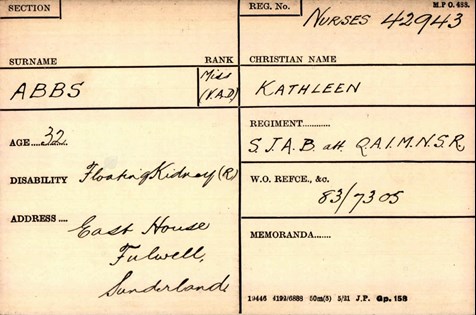 SECTION
REG. No.
M.P.O. 488.
NURSES 42943
SURNAME
RANK
CHRISTIAN NAME
ABBS
Miss
(V.A.D)
KATHLEEN
REGIMENT............
S.J.A.B. att. Q.A.I.M.N.S.R
AGE....32
DISABILITY Floating Kidney (R)
W.O. REFCE., &c.
83/7305
ADDRESS....
East House
Fulwell,
Sunderland
MEMORANDA.......
19446 4192/6888 50m(3) 5/21 J.P. Gp. 158